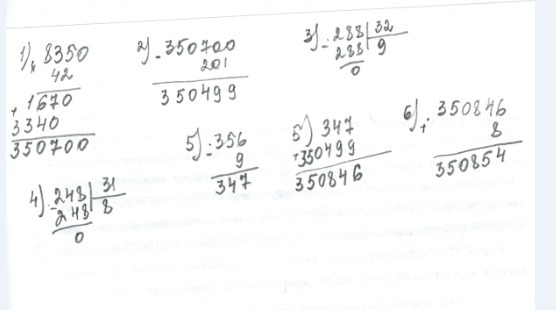 1) × 8350
42
+ 1670
3340
350700
2) - 350700
201
350499
3) - 288 | 32
288 | 9
0
4) - 248 | 31
248 | 8
0
5) - 356
9
347
5) 347
+350499
350846
6) + 350846
8
350854